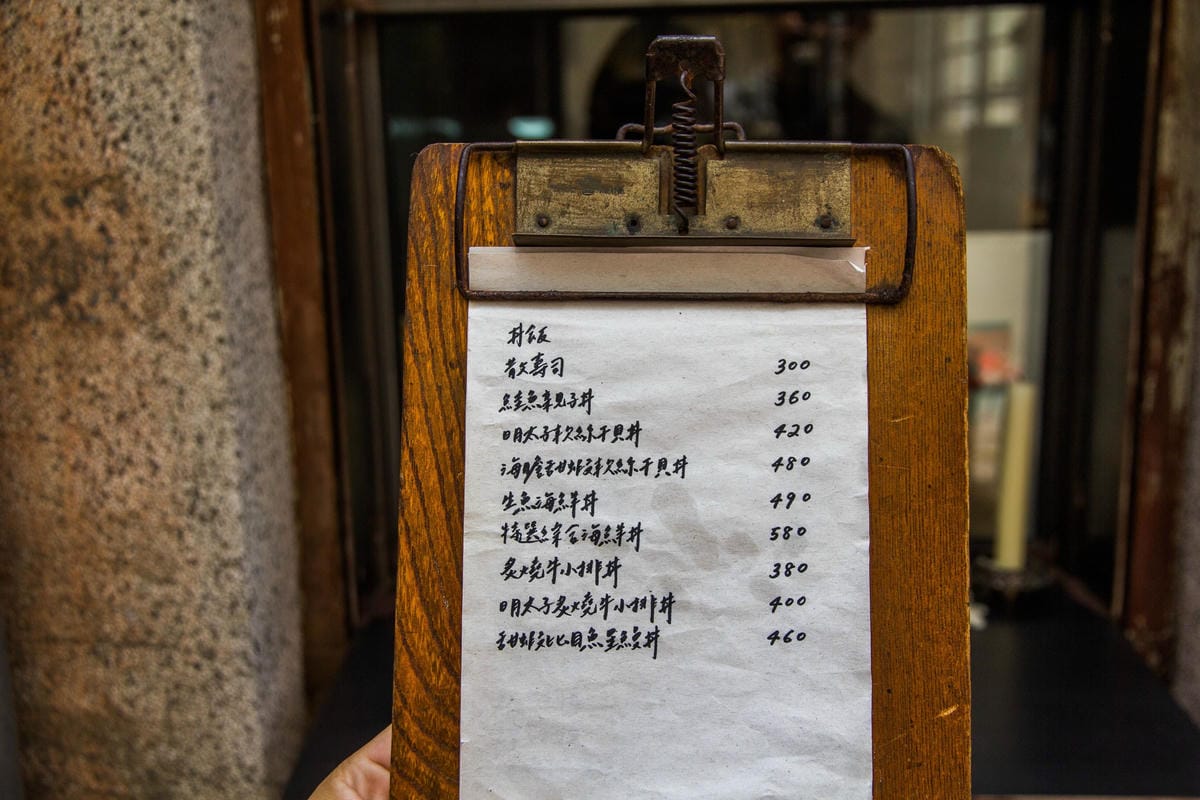 丼飯
散壽司 300
鮭魚親子丼 360
明太子軟絲干貝丼 420
海膽甜蝦軟絲干貝丼 480
生魚海鮮丼 490
特選綜合海鮮丼 580
炙燒牛小排丼 380
明太子炙燒牛小排丼 400
甜蝦比目魚星鰻丼 460